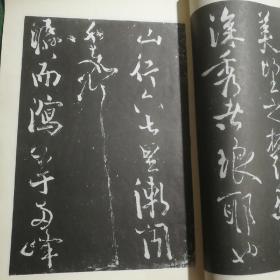 美望之蔚然
深秀者琅耶也
山行六七里漸聞
水聲
潺而瀉出于兩峰